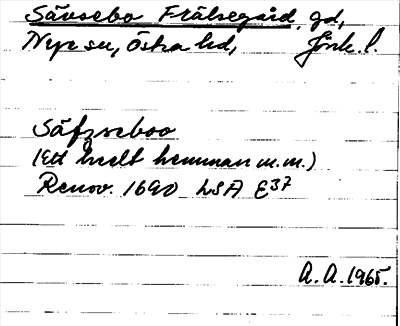 Sävsebo Frälsegård, gd,
Nye sn, Östra hd, Jönk. l.
Säfzseboo
(Ett heelt hemman m.m.)
Renov. 1690 LSA E37
A.A. 1965.